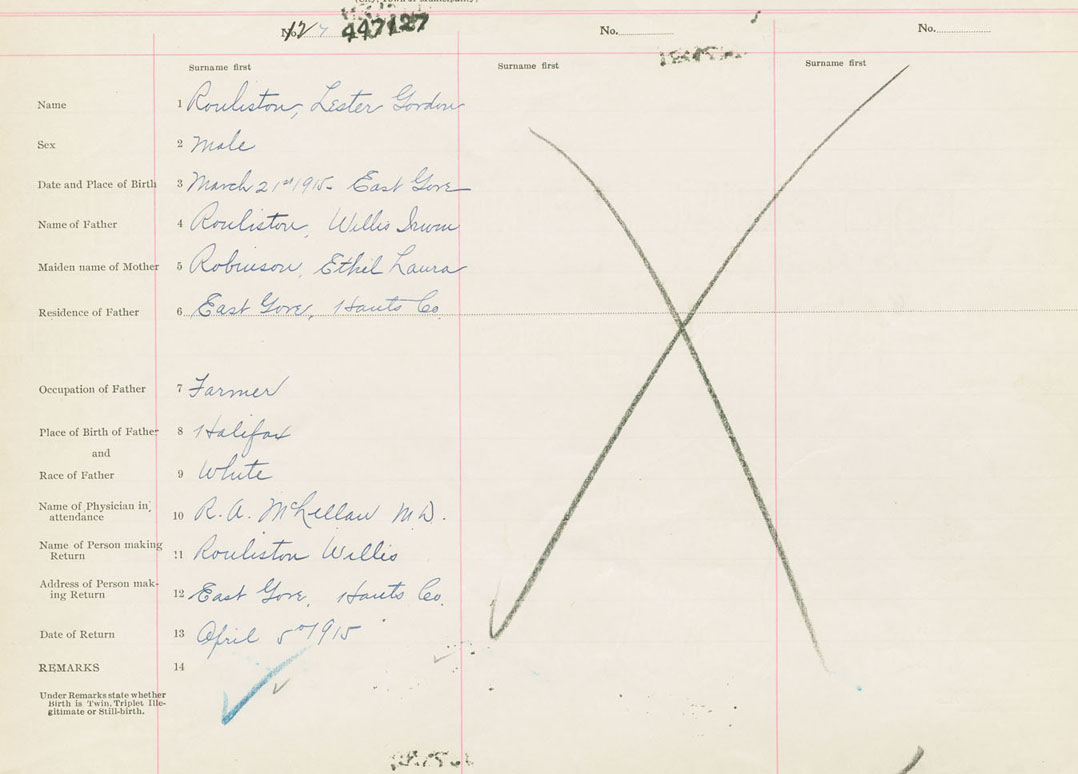 No. 127
447127
No.
No.
Surname first
Surname first
Surname first
Name 1 Rouliston, Lester Gordon
Sex 2 Male
Date and Place of Birth 3 March 21st 1915- East Gore
Name of Father 4 Rouliston, Willis Irwin
Maiden name of Mother 5 Robinson, Ethel Laura
Residence of Father 6 East Gore, Hants Co.
Occupation of Father 7 Farmer
Place of Birth of Father 8 Halifax
and
Race of Father 9 White
Name of Physician in
attendance 10 R. A. McLellan M.D.
Name of Person making
Return 11 Rouliston Willis
Address of Person mak-
ing Return 12 East Gore, Hants Co.
Date of Return 13 April 5th 1915
REMARKS 14
Under Remarks state whether
Birth is Twin, Triplet Ille-
gitimate or Still-birth.